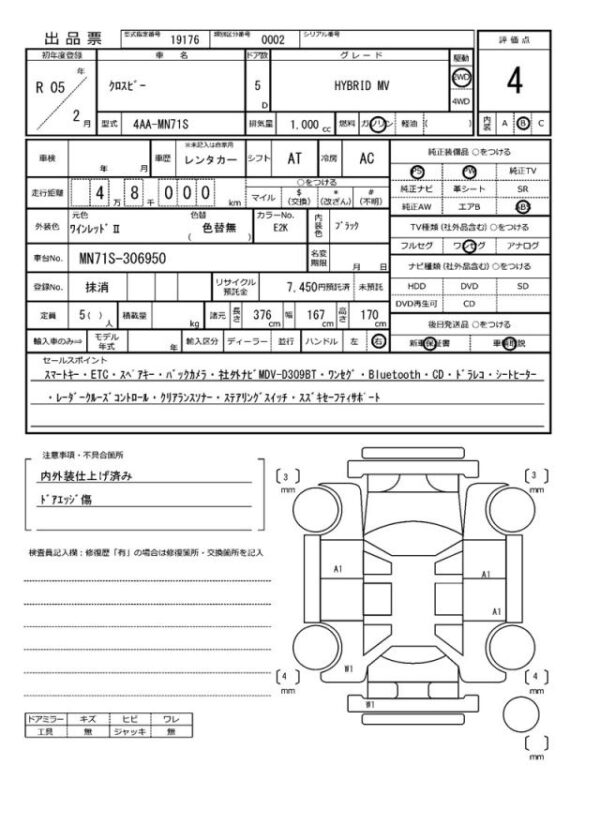 出品票 型式指定番号 19176 類別区分番号 0002 シリアル番号
評価点
初年度登録 車名 ドア数 グレード 駆動
R 05 年 2 月 クロスビー 5 D HYBRID MV 2WD 4WD
4
型式 4AA-MN71S 排気量 1,000 cc 燃料 ガソリン 軽油 ( )
内装 A B C
車検 年 月 車歴 ※未記入は自家用 レンタカー シフト AT 冷房 AC
純正装備品 ○をつける
PS PW 純正TV
走行距離 4 万 8 千 0 0 0 km ○をつける
マイル $ (交換) * (改ざん) # (不明)
純正ナビ 革シート SR
純正AW エアB ABS
外装色 元色 ワインレッドⅡ 色替 ( 色替無 ) カラーNo. E2K 内装色 ブラック
TV種類 (社外品含む) ○をつける
フルセグ ワンセグ アナログ
車台No. MN71S-306950 名変期限 月 日
ナビ種類 (社外品含む) ○をつける
登録No. 抹消 リサイクル預託金 7,450円預託済 未預託
HDD DVD SD
DVD再生可 CD
定員 5( ) 人 積載量 kg 諸元 長さ 376 cm 幅 167 cm 高さ 170 cm
後日発送品 ○をつける
輸入車のみ⇒ モデル年式 年 輸入区分 ディーラー 並行 ハンドル 左 右
新車保証書 車輌取説
セールスポイント
スマートキー・ETC・スペアキー・バックカメラ・社外ナビMDV-D309BT・ワンセグ・Bluetooth・CD・ドラレコ・シートヒーター
・レーダークルーズコントロール・クリアランスソナー・ステアリングスイッチ・スズキセーフティサポート
注意事項・不具合箇所
内外装仕上げ済み
ドアエッジ傷
検査員記入欄：修復歴「有」の場合は修復箇所・交換箇所を記入
(3) mm
(3) mm
A1
A1
A1
W1
(4) mm
(4) mm
W1
( ) mm
ドアミラー キズ ヒビ ワレ
工具 無 ジャッキ 無